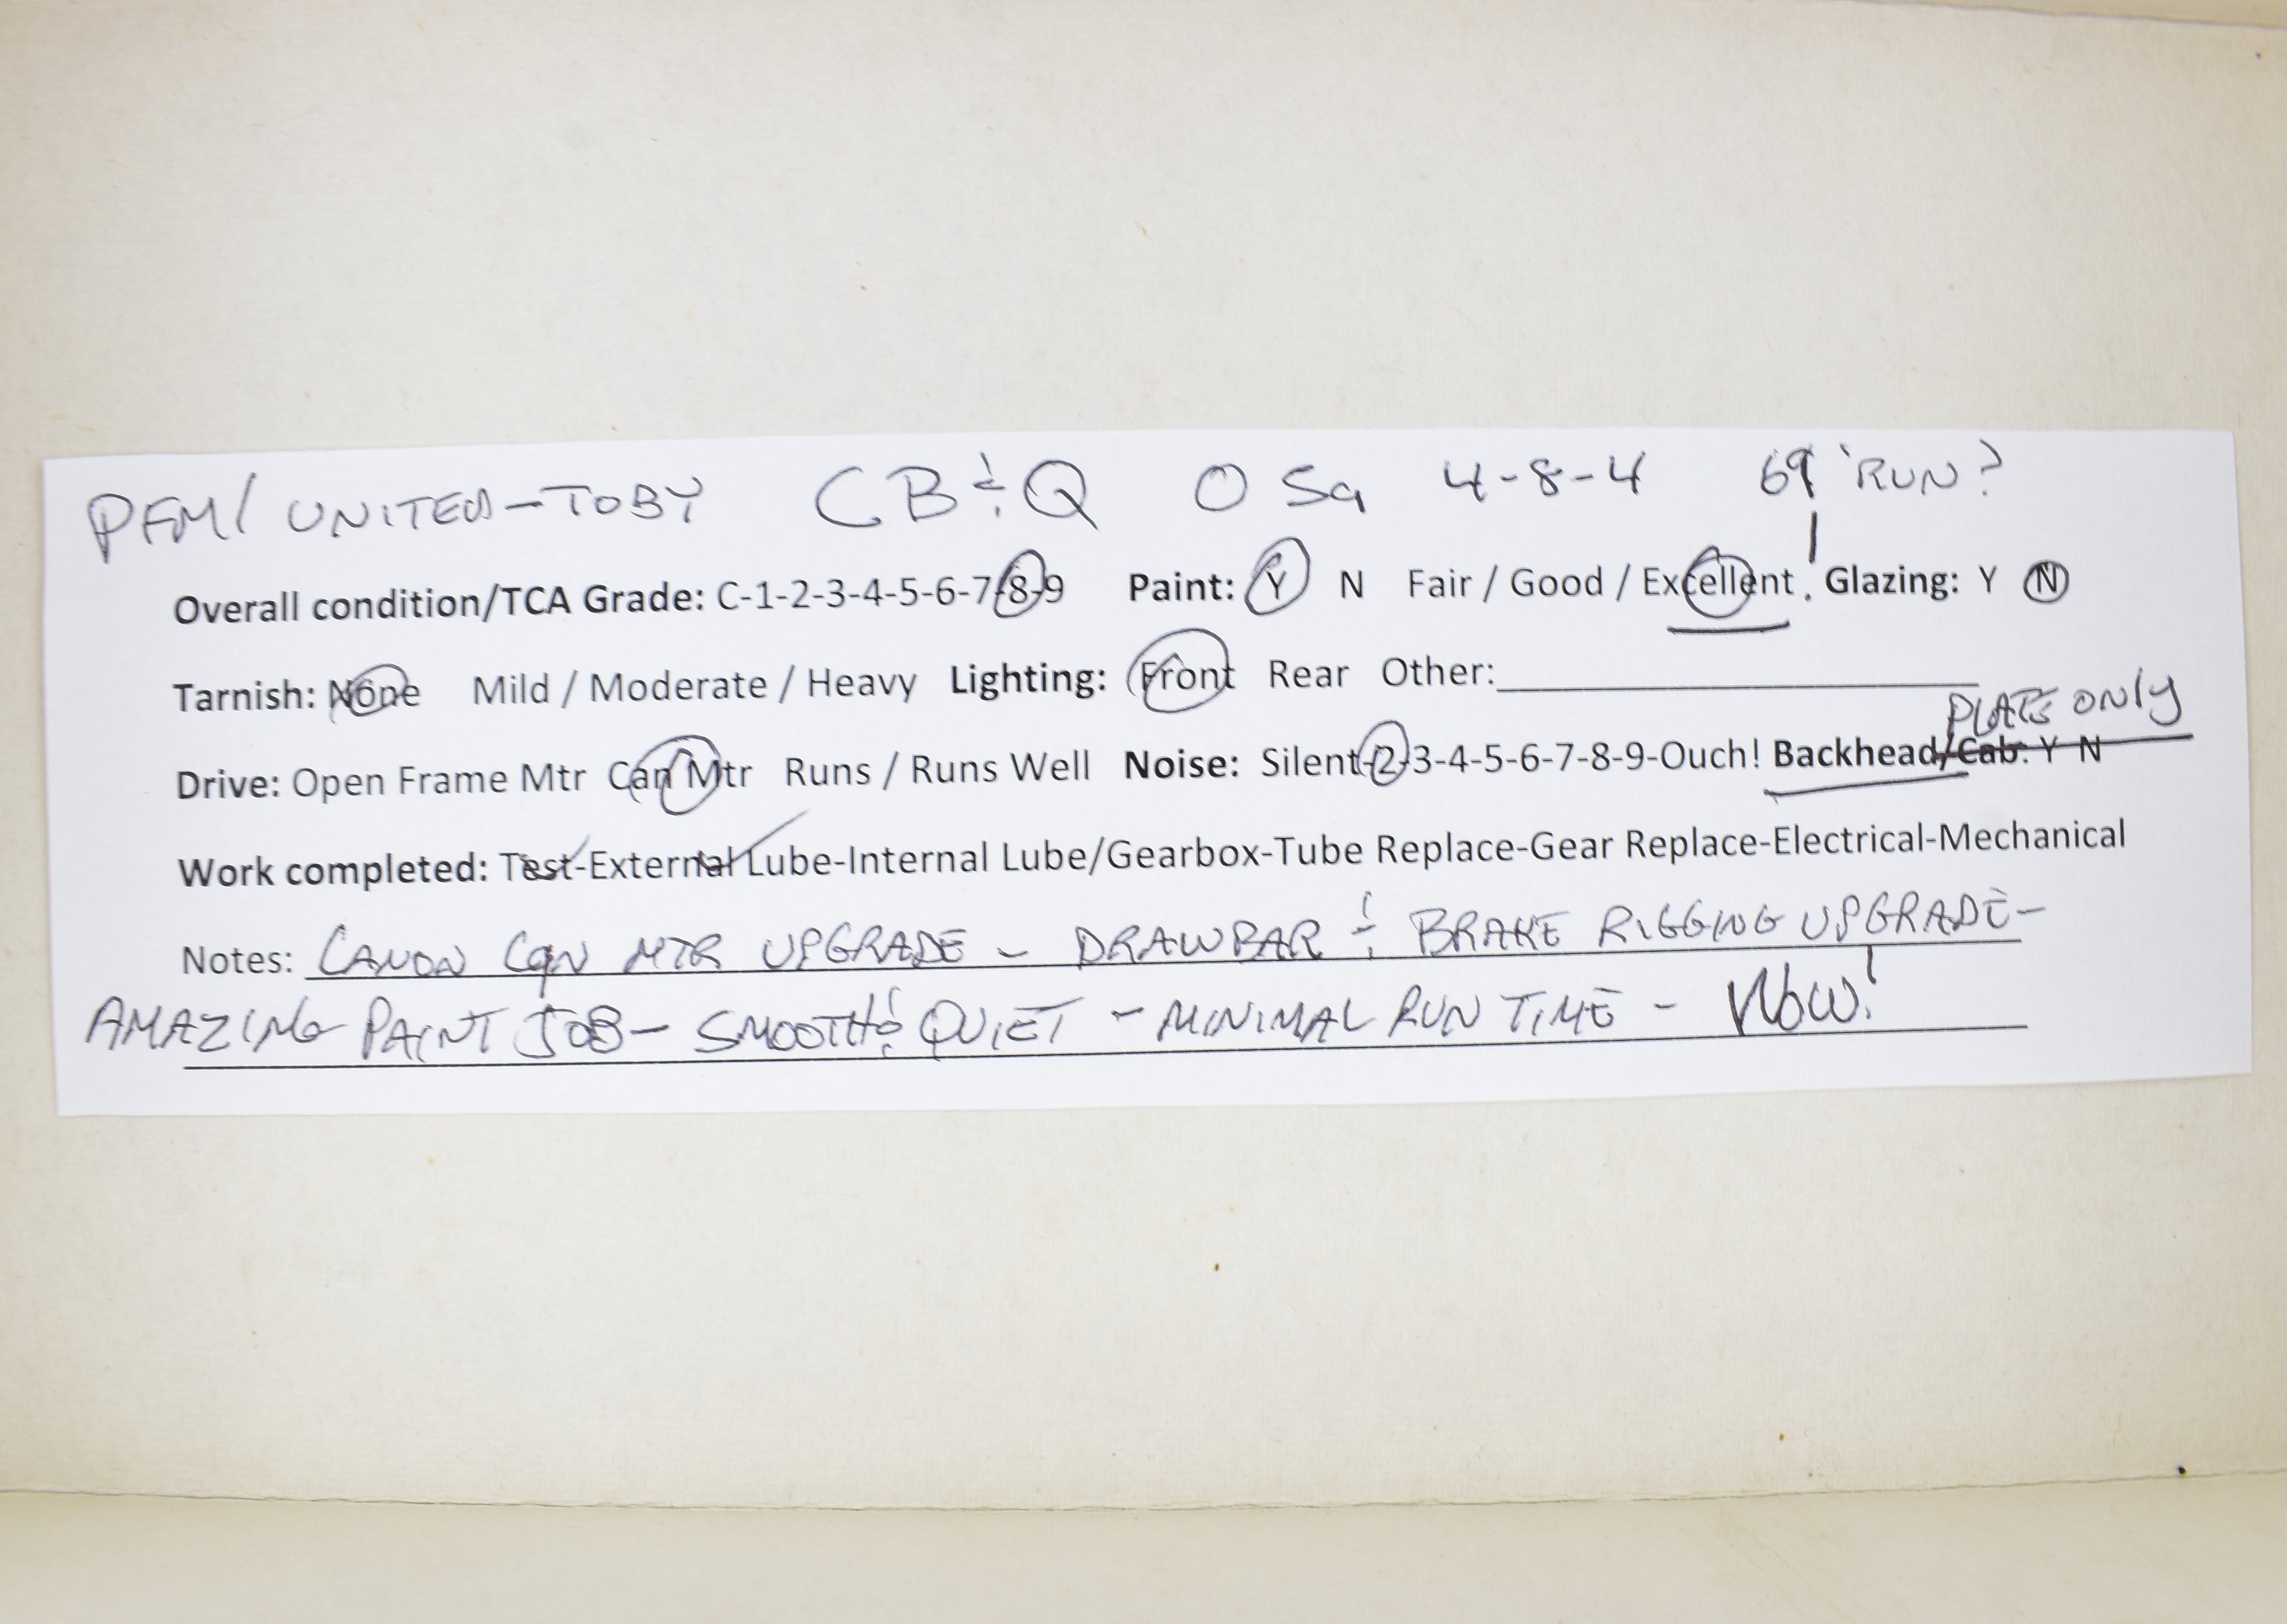 PFM/ UNITED-TOBY CB&Q O5a 4-8-4 69 'RUN?
Overall condition/TCA Grade: C-1-2-3-4-5-6-7-8-9 Paint: Y N Fair / Good / Excellent! Glazing: Y N
Tarnish: None Mild / Moderate / Heavy Lighting: Front Rear Other:
PLATE ONLY
Drive: Open Frame Mtr Can Mtr Runs / Runs Well Noise: Silent-2-3-4-5-6-7-8-9-Ouch! Backhead/Cab: Y N
Work completed: Test-External Lube-Internal Lube/Gearbox-Tube Replace-Gear Replace-Electrical-Mechanical
Notes: CANON CAN MTR UPGRADE - DRAWBAR & BRAKE RIGGING UPGRADE-
AMAZING PAINT JOB- SMOOTH & QUIET - MINIMAL RUN TIME - WOW!